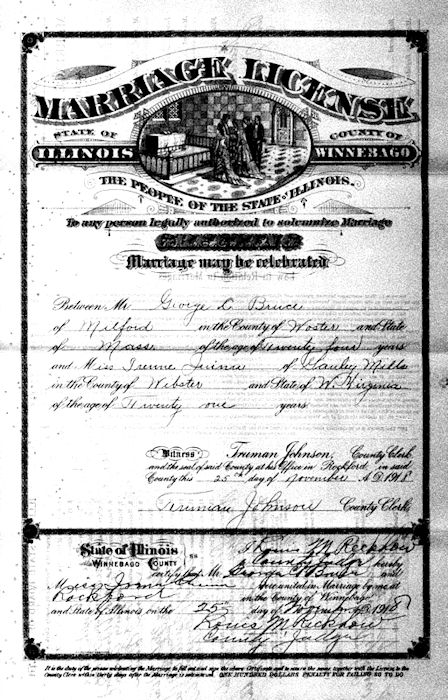 MARRIAGE LICENSE
STATE OF
COUNTY OF
ILLINOIS
WINNEBAGO
THE PEOPLE OF THE STATE of ILLINOIS.
To any person legally authorized to solemnize Marriage
Marriage may be celebrated
Between Mr George D. Bruce
of Milford in the County of Woster and State
of Mass. of the age of twenty four years
and Miss Irene of Hanley Mills
in the County of Webster and State of W. Virginia
of the age of Twenty one years
Witness Truman Johnson, County Clerk
and the seal of said County at his Office in Rockford, in said
County this 25th day of November A.D. 1918.
Truman Johnson County Clerk
State of Illinois ss I Louis M. Reckhow
WINNEBAGO COUNTY County Judge hereby
certify that Mr. George D. Bruce and
Miss were united in Marriage by me at
Rockford in the County of Winnebago
and State of Illinois on the 25 day of 1918
Louis M Reckhow
County Judge
It is the duty of the person celebrating the Marriage, to fill out and sign the above Certificate and to return the same together with the License, to the
County Clerk within thirty days after the Marriage is solemnized. ONE HUNDRED DOLLARS PENALTY FOR FAILING SO TO DO